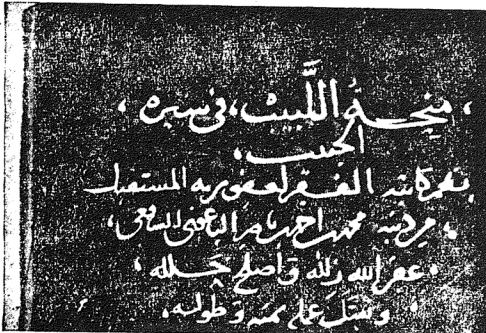 ، مِنحَةُ اللَّبيب، فى سيره ،
الحبيب ،
نظم كاتبه الفقير لعفو ربه المستقيل
من ذنبه محمد بن احمد بن ناصر الباعونى الشافعى ،
، غفر الله زلله وأصلح خلله ،
وتقبل عمله بمنه وطوله ،